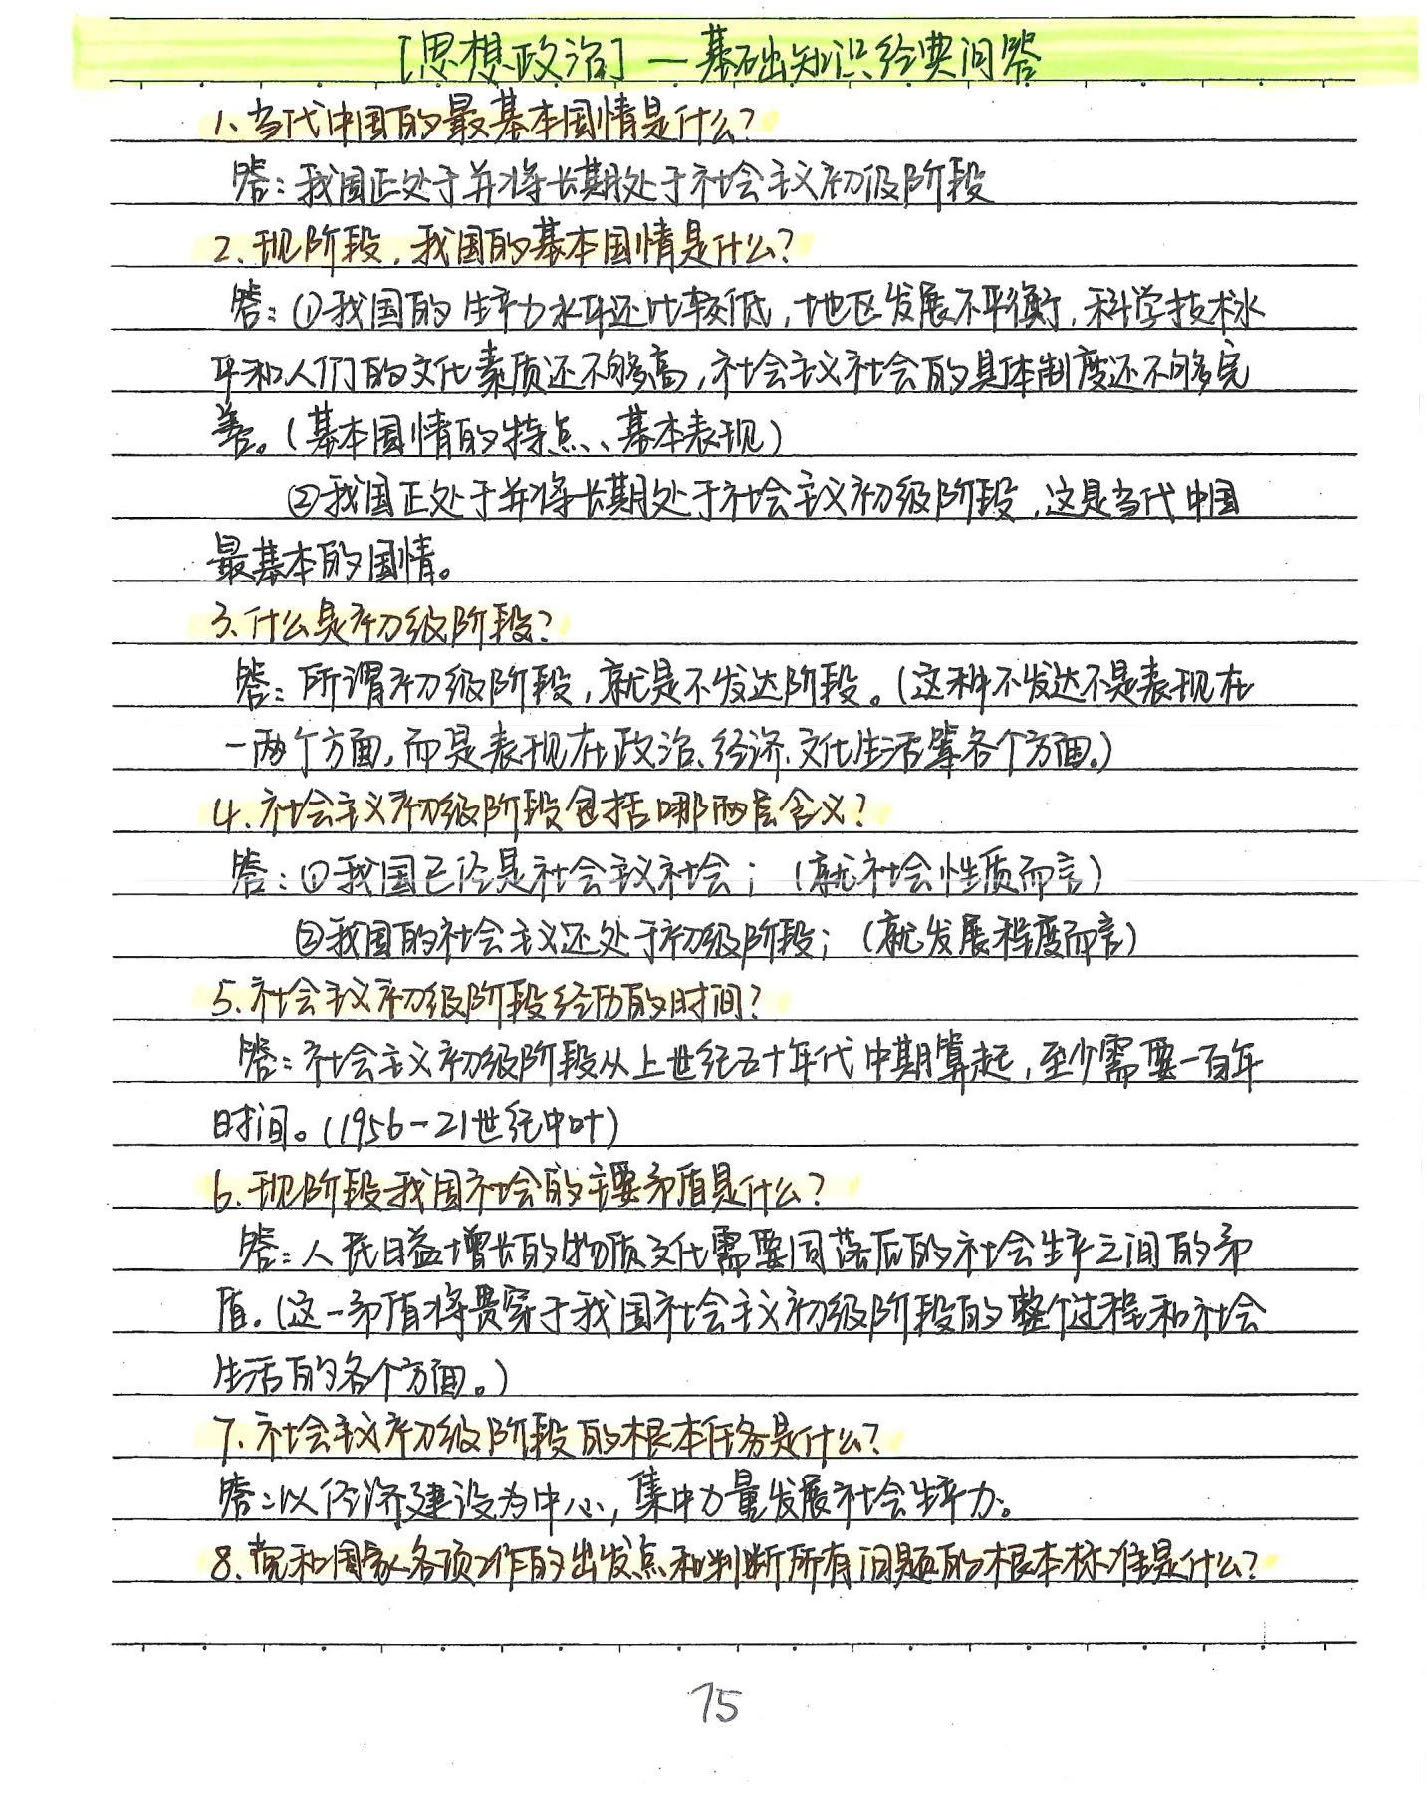 [思想政治]—基础知识经典问答
1、当代中国的最基本国情是什么?
答:我国正处于并将长期处于社会主义初级阶段
2、现阶段,我国的基本国情是什么?
答:①我国的生产力水平还比较低,地区发展不平衡,科学技术水
平和人们的文化素质还不够高,社会主义社会的具体制度还不够完
善。(基本国情的特点、基本表现)
②我国正处于并将长期处于社会主义初级阶段,这是当代中国
最基本的国情。
3、什么是初级阶段?
答:所谓初级阶段,就是不发达阶段。(这种不发达不是表现在
一两个方面,而是表现在政治、经济、文化生活等各个方面。)
4、社会主义初级阶段包括哪两层含义?
答:①我国已经是社会主义社会;(就社会性质而言)
②我国的社会主义还处于初级阶段;(就发展程度而言)
5、社会主义初级阶段经历的时间?
答:社会主义初级阶段从上世纪五十年代中期算起,至少需要一百年
时间。(1956-21世纪中叶)
6、现阶段我国社会的主要矛盾是什么?
答:人民日益增长的物质文化需要同落后的社会生产之间的矛
盾。(这一矛盾将贯穿于我国社会主义初级阶段的整个过程和社会
生活的各个方面。)
7、社会主义初级阶段的根本任务是什么?
答:以经济建设为中心,集中力量发展社会生产力。
8、党和国家各项工作的出发点和判断所有问题的根本标准是什么?
75